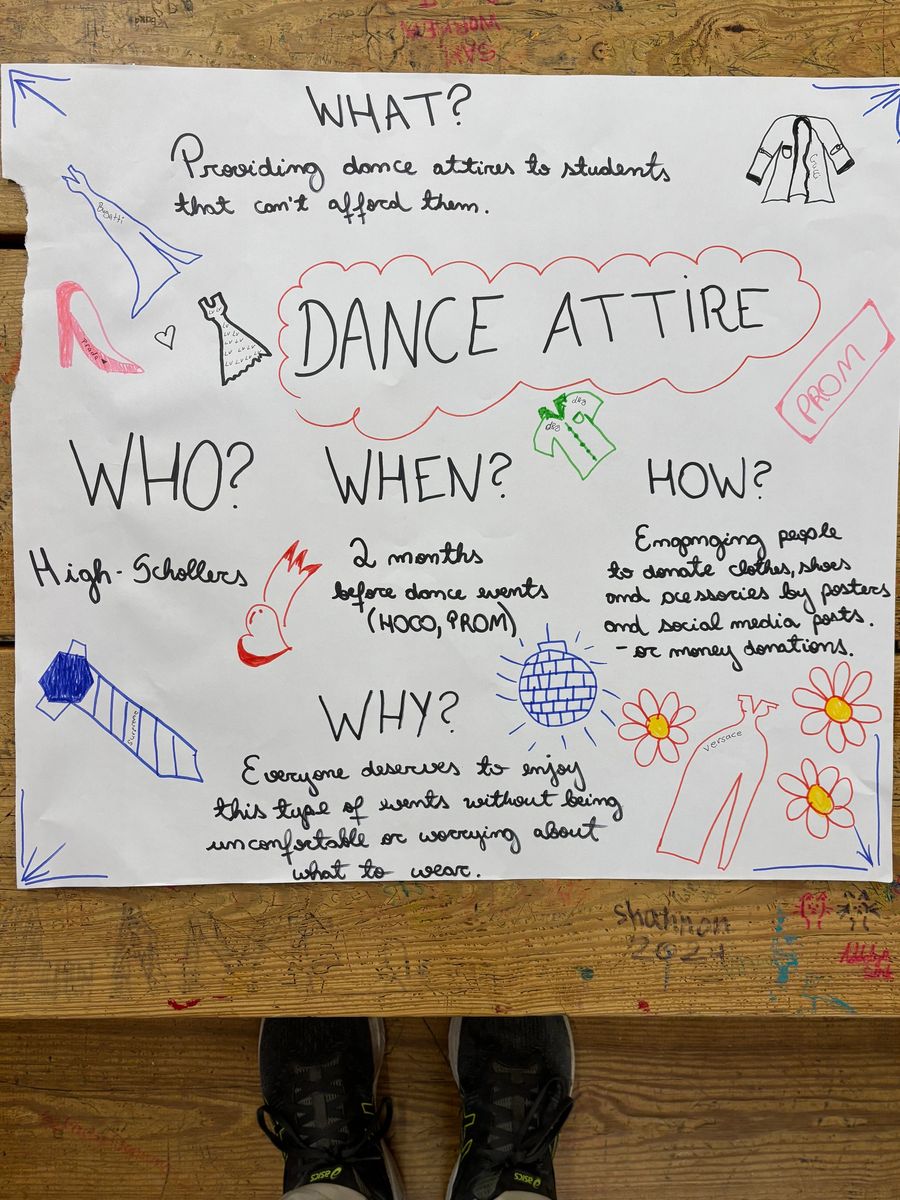 WHAT?
Providing dance attires to students
that can't afford them.
GUCCI
Prada
LV LV
LV
LV LV
LV LV LV
LV LV LV
DANCE ATTIRE
PROM
d&g
d&g
WHO?
High-Schollers
WHEN?
2 months
before dance events
(HOCO, PROM)
HOW?
Enganging people
to donate clothes, shoes
and acessories by posters
and social media posts.
- or money donations.
Supreme
WHY?
Everyone deserves to enjoy
this type of events without being
unconfortable or worrying about
what to wear.
versace
shannon
2024
asics
asics